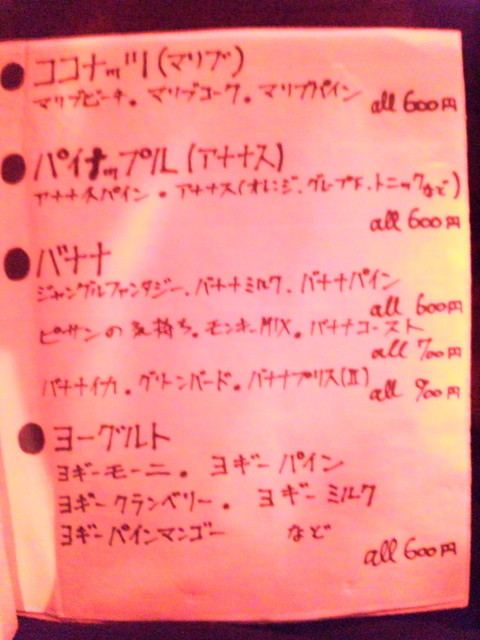 ココナッツ(マリブ)
マリブビーチ。マリブコーク。マリブパイン all 600円
パイナップル(アナナス)
アナナスパイン・アナナス(オレンジ、グレプF、トニックなど)
all 600円
バナナ
ジャングルファンタジー、バナナミルク、バナナパイン
all 600円
ピサンの気持ち。モンキーMIX。バナナコースト
all 700円
バナナイカ。グリーンバード。バナナブリス(II) all 900円
ヨーグルト
ヨギーモーニ。 ヨギーパイン
ヨギークランベリー。 ヨギーミルク
ヨギーパインマンゴー など
all 600円